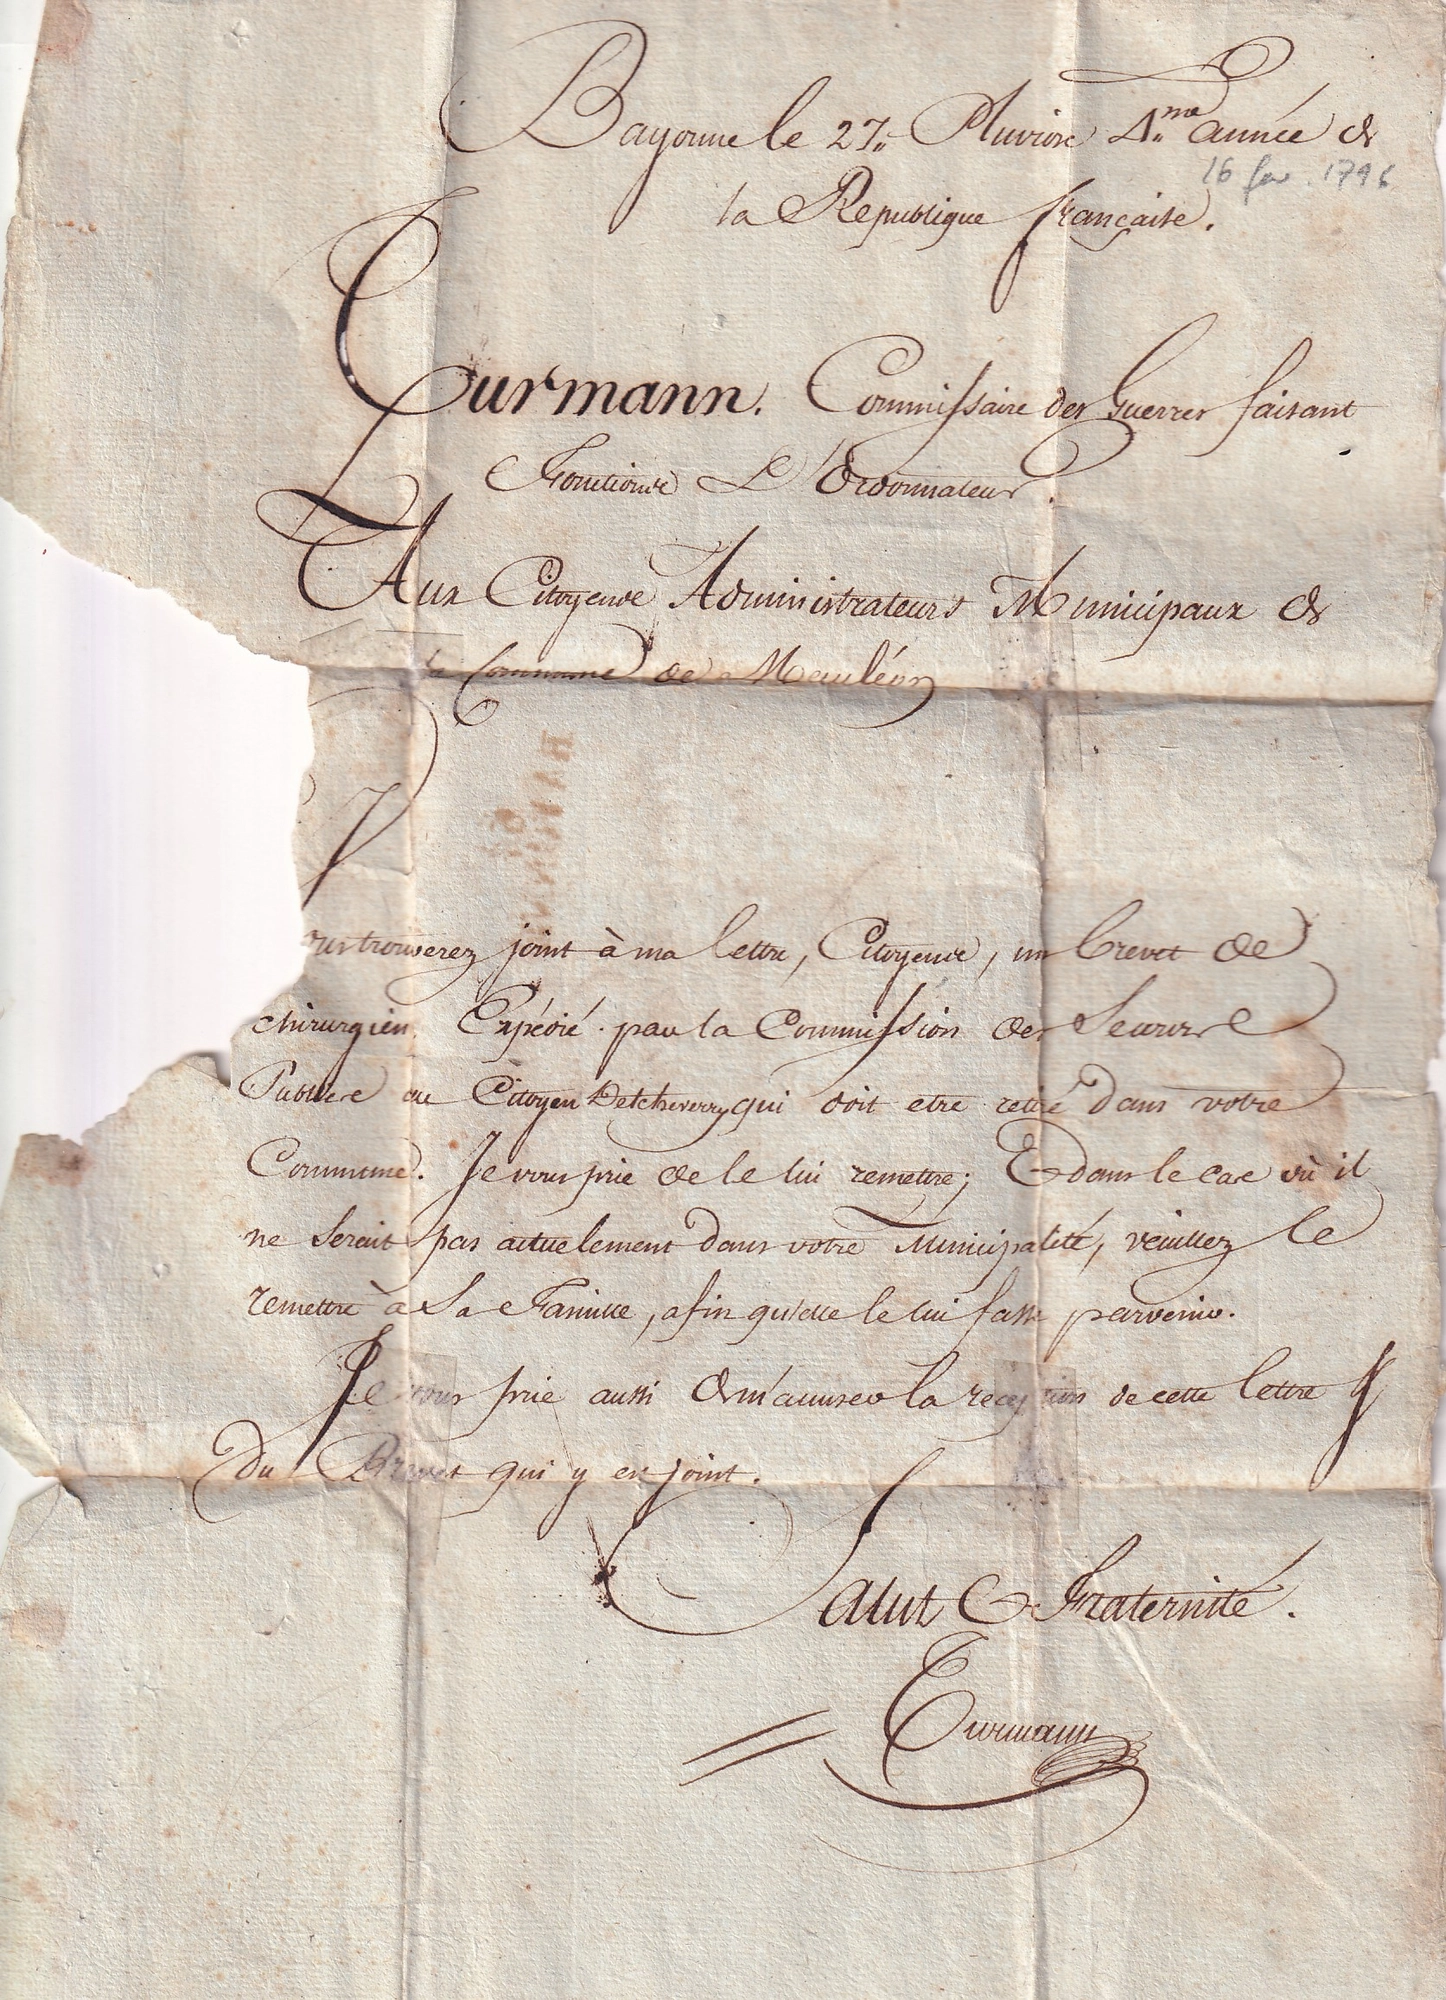 Bayonne le 27,, Pluviose 4,,me année de
16 fev. 1796
la Republique française.
Turmann. Commissaire des Guerres faisant
Fonctions D'Ordonnateur.
Aux Citoyens Administrateurs Municipaux de
la Commune de Mauléon
Vous trouverez joint à ma lettre, Citoyens, un brevet de
chirurgien Expédié par la Commission des Secours
Publics au Citoyen Detcheverry qui doit etre retiré dans votre
Commune. Je vous prie de le lui remettre; Et dans le cas où il
ne serait pas actuelement dans votre Municipalité, veuillez le
remettre à Sa Famille, afin qu'elle le lui fasse parvenir.
Je vous prie aussi de m'accuser la reception de cette lettre &
du Brevet qui y est joint.
Salut & Fraternité.
Turmann